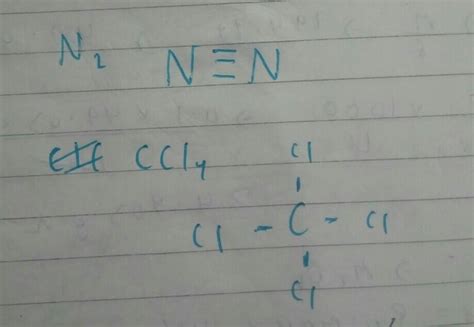 N₂ N≡N
CCl₄ Cl
Cl - C - Cl
Cl